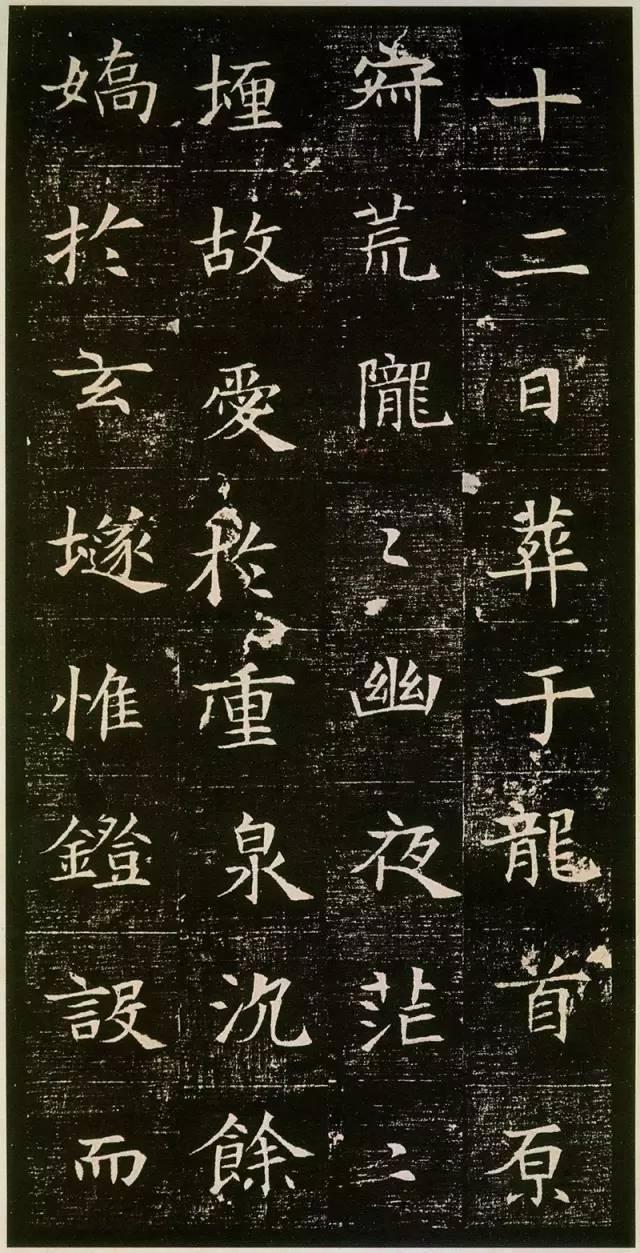 十二日葬于龍首原
荒隴〻幽夜茫〻
故愛於重泉沉餘
嬌於玄𡑞惟鐙設而